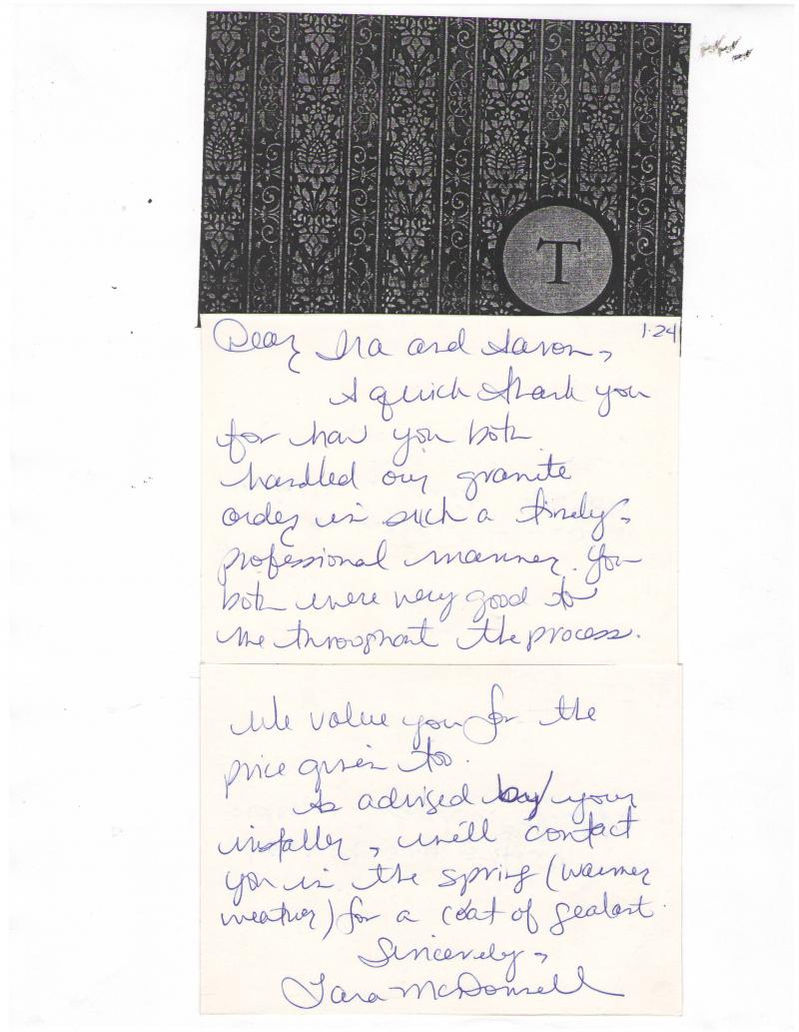 T
1-24
Dear Ira and Aaron,
A quick thank you
for how you both
handled our granite
order in such a timely,
professional manner. You
both were very good to
me throughout the process.
We value you for the
price given too.
As advised by your
installer, we'll contact
you in the spring (warmer
weather) for a coat of sealant.
Sincerely,
Tara McDonnell